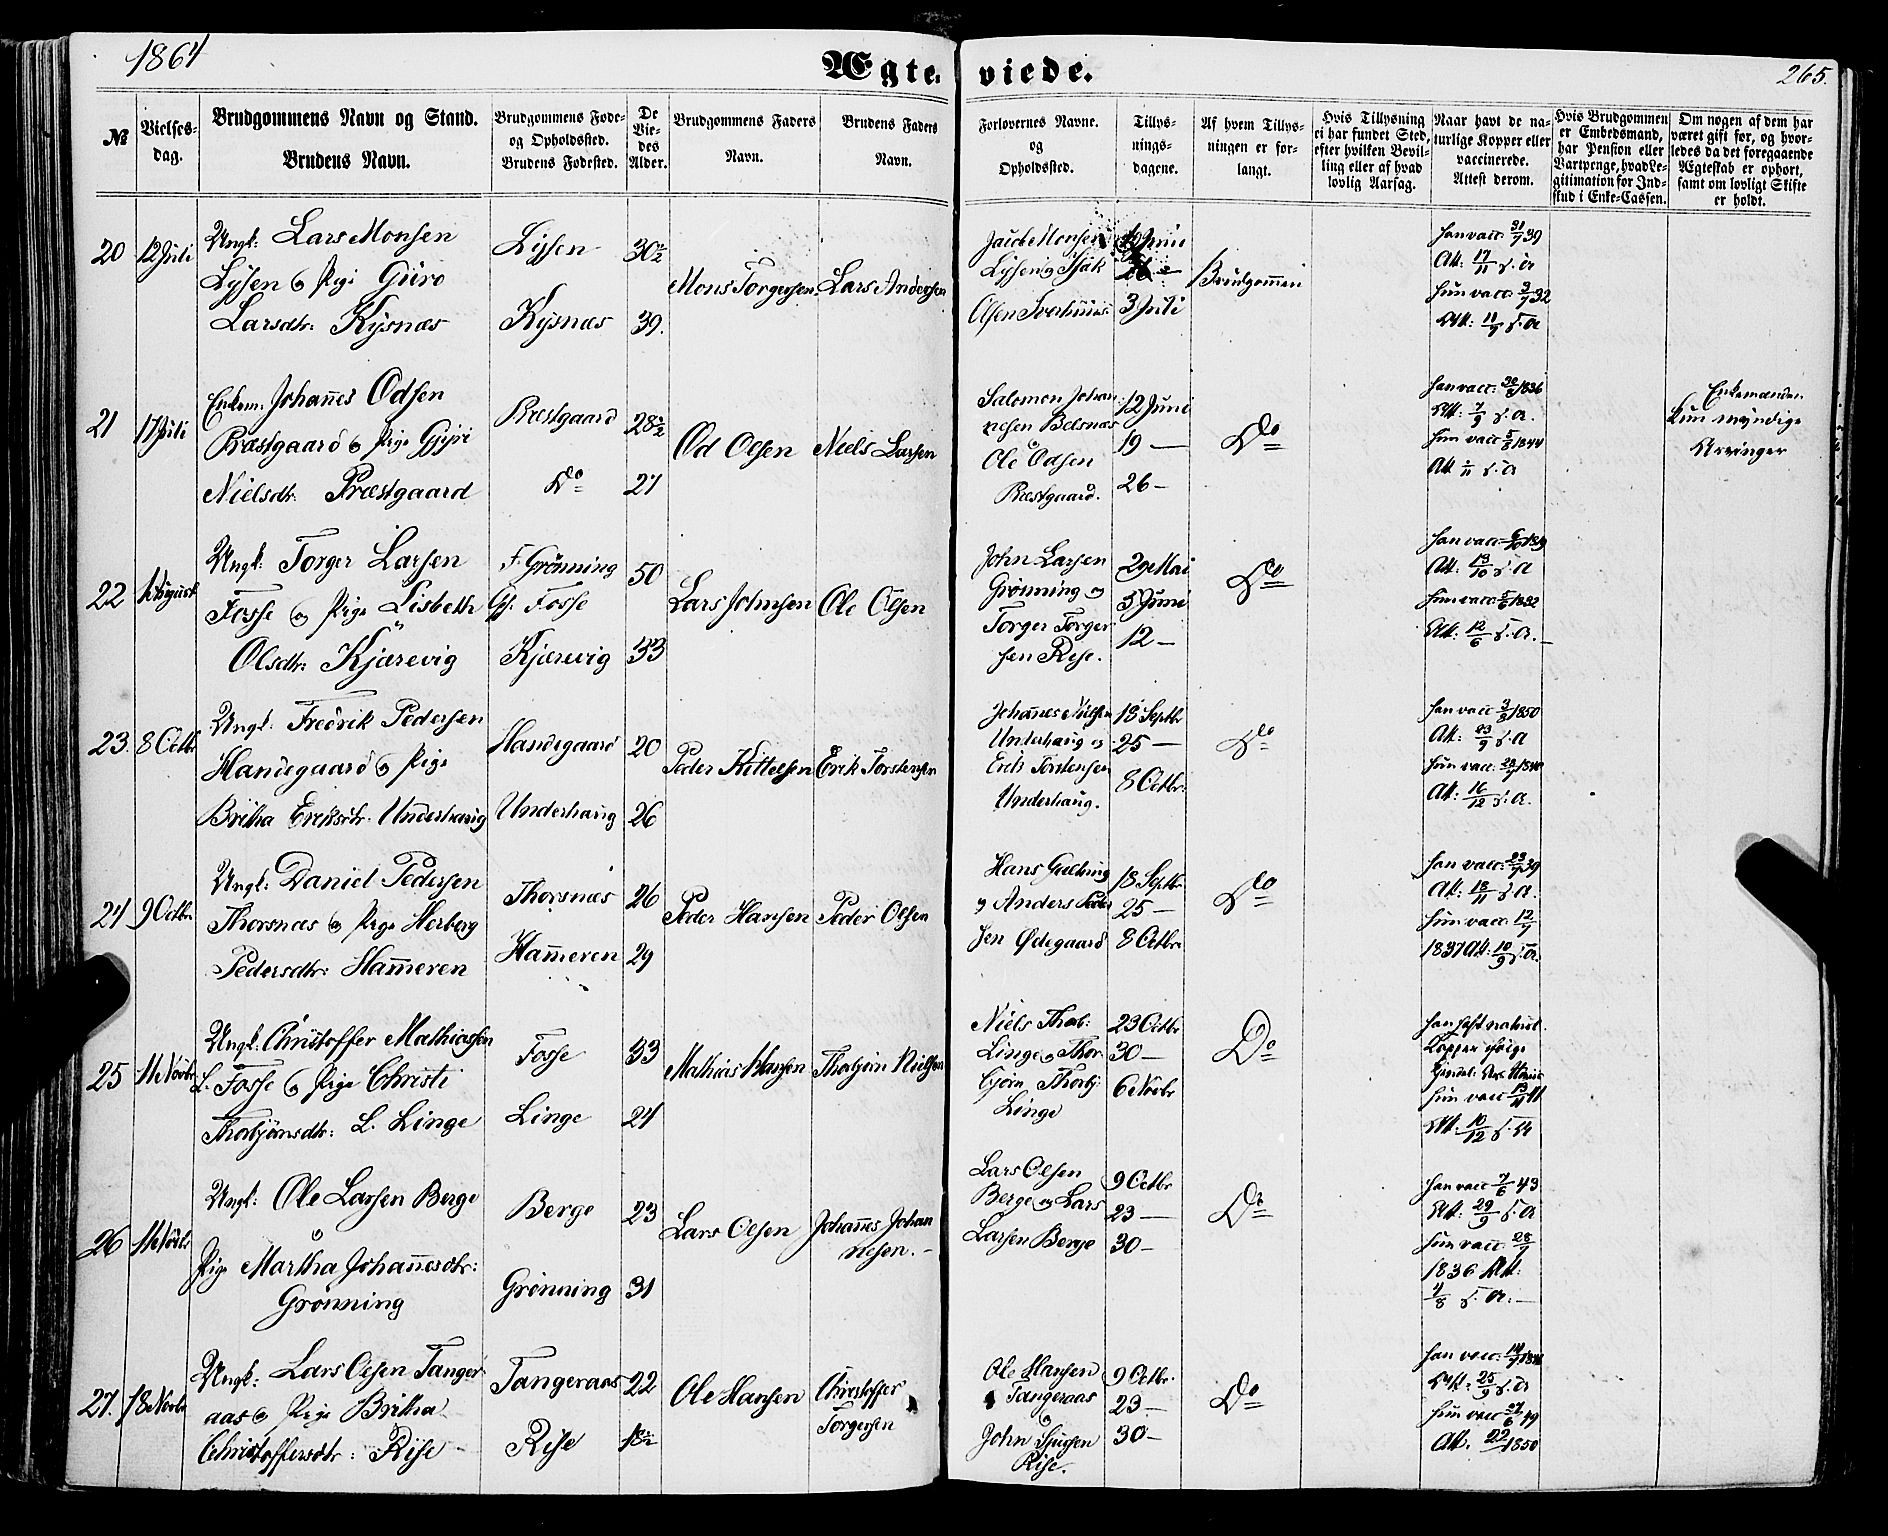 1864
Ægteviede.
265.
№
Vielses-
dag.
Brudgommens Navn og Stand.
Brudens Navn.
Brudgommens Føde-
og Opholdssted.
Brudens Fødested.
De
Vie-
des
Alder.
Brudgommens Faders
Navn.
Brudens Faders
Navn.
Forlovernes Navne.
og
Opholdssted.
Tillys-
nings-
dagene.
Af hvem Tillys-
ningen er for-
langt.
Hvis Tillysning
ei har fundet Sted,
efter hvilken Bevil-
ling eller af hvad
lovlig Aarsag.
Naar havt de na-
turlige Kopper eller
vaccinerede.
Attest derom.
Hvis Brudgommen
er Embedsmand,
har Pension eller
Vartpenge, hvad Le-
gitimation for Ind-
skud i Enke-Cassen.
Om nogen af dem har
været gift før, og hvor-
ledes da det foregaaende
Ægteskab er ophørt,
samt om lovligt Skifte
er holdt.
20
12 Juli
Ungk: Lars Monsen
Lysen og Pige Guro
Larsdtr: Kysnæs
Lysen
Kysnæs
30½
39.
Mons Torgersen
Lars Andersen
Monsen
Lysen og
Olsen
12 Juni
3 Juli
Brudgommen
han vacc: 31/7 39
Att: 17/11 s. a
hun vacc: 3/7 32
Att: 11/9 s. a
21
17 Juli
Enkem. Johan̄es Odsen
Præstgaard og Pige Gjyri
Nielsdtr: Præstgaard
Præstgaard
Do
28½
27
Od Olsen
Niels Larsen
Salomon Johan
nesen Belsnæs
o
Ole Odsen
Præstgaard.
12 Juni
19 —
26 —
Do
han vacc: 1836
Att: 7/9 s. a.
hun vacc 1844
Att s. a
Enkemanden
kun myndige
Arvinger
22
August
Ungk: Torger Larsen
Fosse og Pige Lisbeth
Olsdtr: Kjærevig
F. Grønning
Fosse
Kjærevig
50
33
Lars Johnsen
Ole Olsen
John Larsen
Grønning og
Torger Torger
sen Rise.
29 Mai
5 Juni
12 —
Do
han vacc:
Att: 13/10 s. a
hun vacc: 5/6 1832
Att: 12/6 s. a. —
23.
8 Octbr
Ungk: Fredrik Pedersen
Handegaard og Pige
Britha Eriksdtr. Underhaug
Handegaard
Underhaug
20
26
Peder Kittelsen
Erik Torstensen
Johan̄es Nielsen
Underhaug og
Erik Torstensen
Underhaug.
18 Septbr
25 —
8 Octbr.
Do
han vacc 3/8 1850
Att: 23/9 s. a
hun vacc:
Att: 16/12 s. a.
24
9 Octbr
Ungk: Daniel Pedersen
Thorsnæs og Pige Herborg
Pedersdtr: Ham̄eren
Thorsnæs
Ham̄eren
26
29
Peder Hansen
Peder Olsen
Hans
og Anders Peder
sen Ødegaard
18 Septbr
25 —
8 Octbr.
Do
han vacc: 23/7 39
Att: 18/11 s. a.
hun vacc: 12/9
1837 Att: 10/9 s. a.
25
Novbr
Ungk: Christoffer Mathiassen
L. Fosse og Pige Christi
Thorbjørnsdtr: L. Linge
Fosse
Linge
33
24
Mathias Hansen
Thorbjørn Nielsen
Niels Thorb:
Linge og Thor
bjørn Thorbj:
Linge
23 Octbr
30 —
6 Novbr
Do
han haft naturl.
Kopper
hun vacc 13/11 41
Att: 10/12 s. a
26
Novbr
Ungk: Ole Larsen Berge
o
Pige Martha Johan̄esdtr:
Grønning
Berge
Grønning
23
31
Lars Olsen
Johan̄es Johan
nesen. —
Lars Olsen
Berge og Lars
Larsen Berge
9 Octbr
23 —
30 —
Do
han vacc 7/6 43
Att: 29/9 s. a
hun vacc. 28/7
1836 Att:
4/8 s. a. —
27.
18 Novbr
Ungk: Lars Olsen Tanger
aas og Pige Britha
Christoffersdtr: Rise
Tangeraas
Rise
22
18½
Ole Hansen
Christoffer
Torgersen
Ole Hansen
Tangeraas
o
John Sjursen
Rise.
9 Octbr.
23 —
30 —
Do
han vacc:
Att: 25/9 s. a
hun vacc 27/6 49
Att: 1850